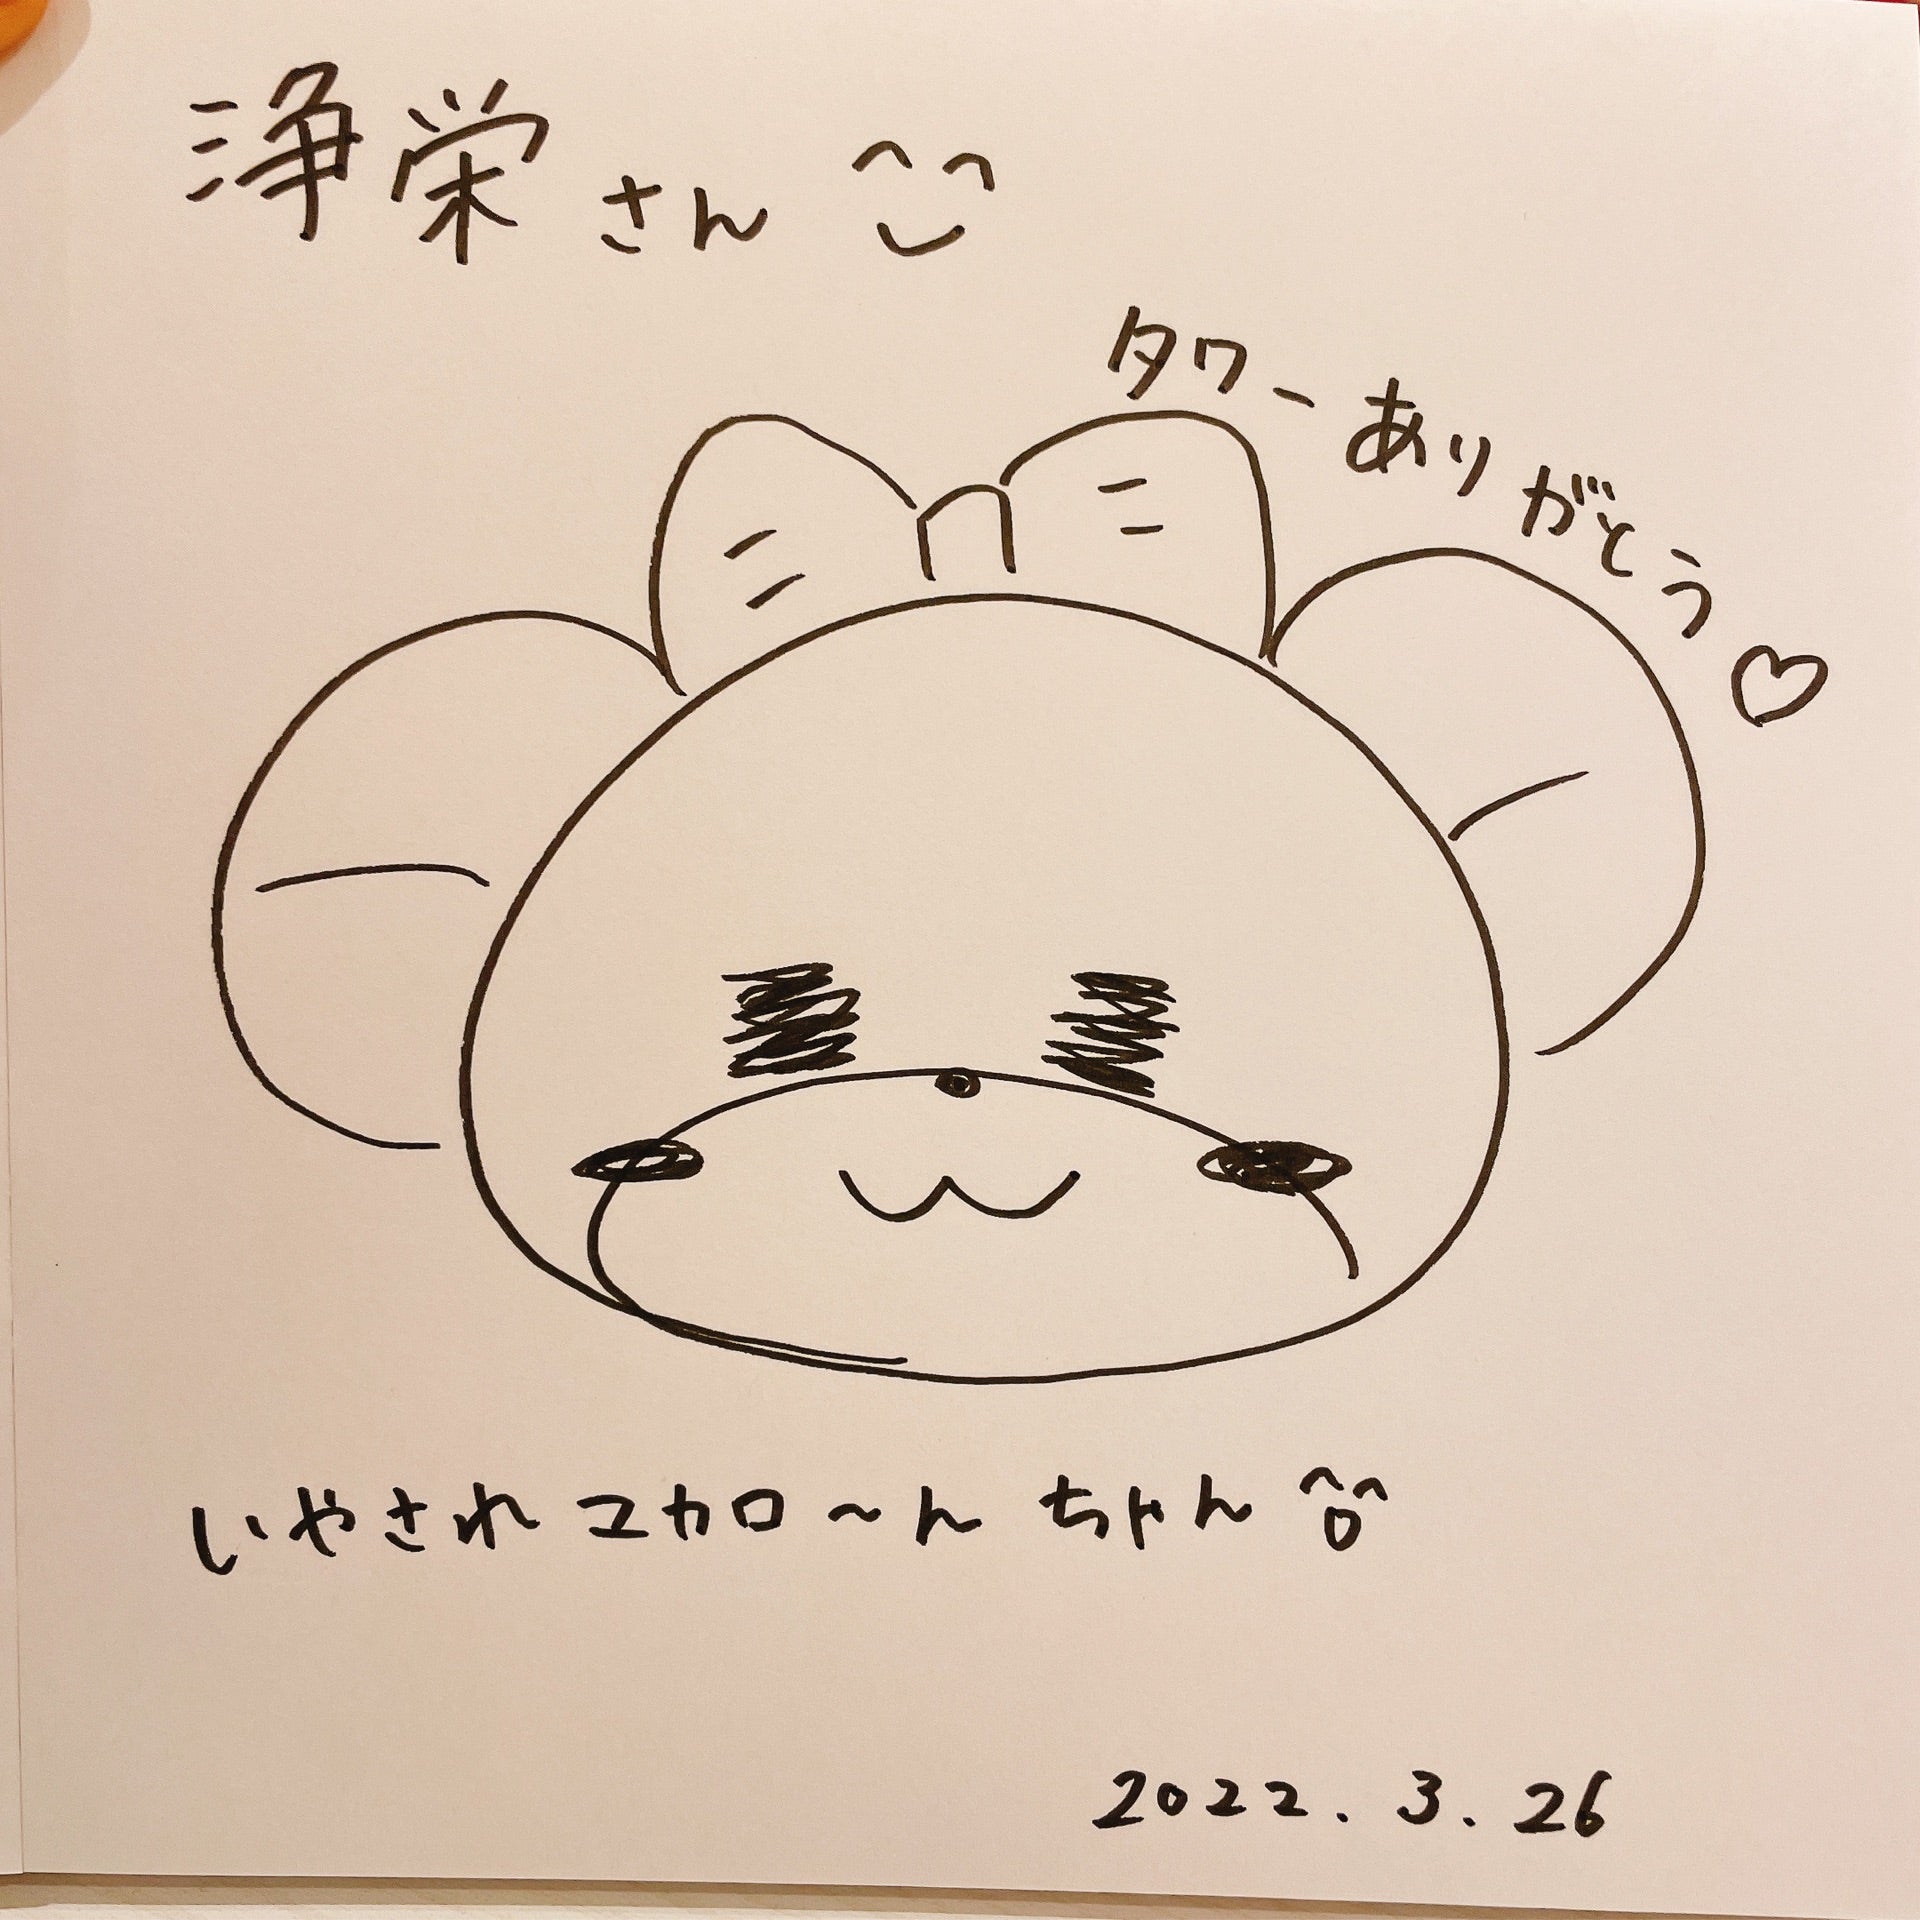 浄栄さん
タワーありがとう♡
いやされマカロ〜んちゃん
2022.3.26